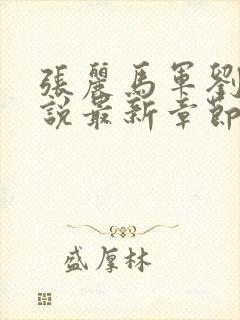 張麗馬軍劉
說最新章節
盛厚林